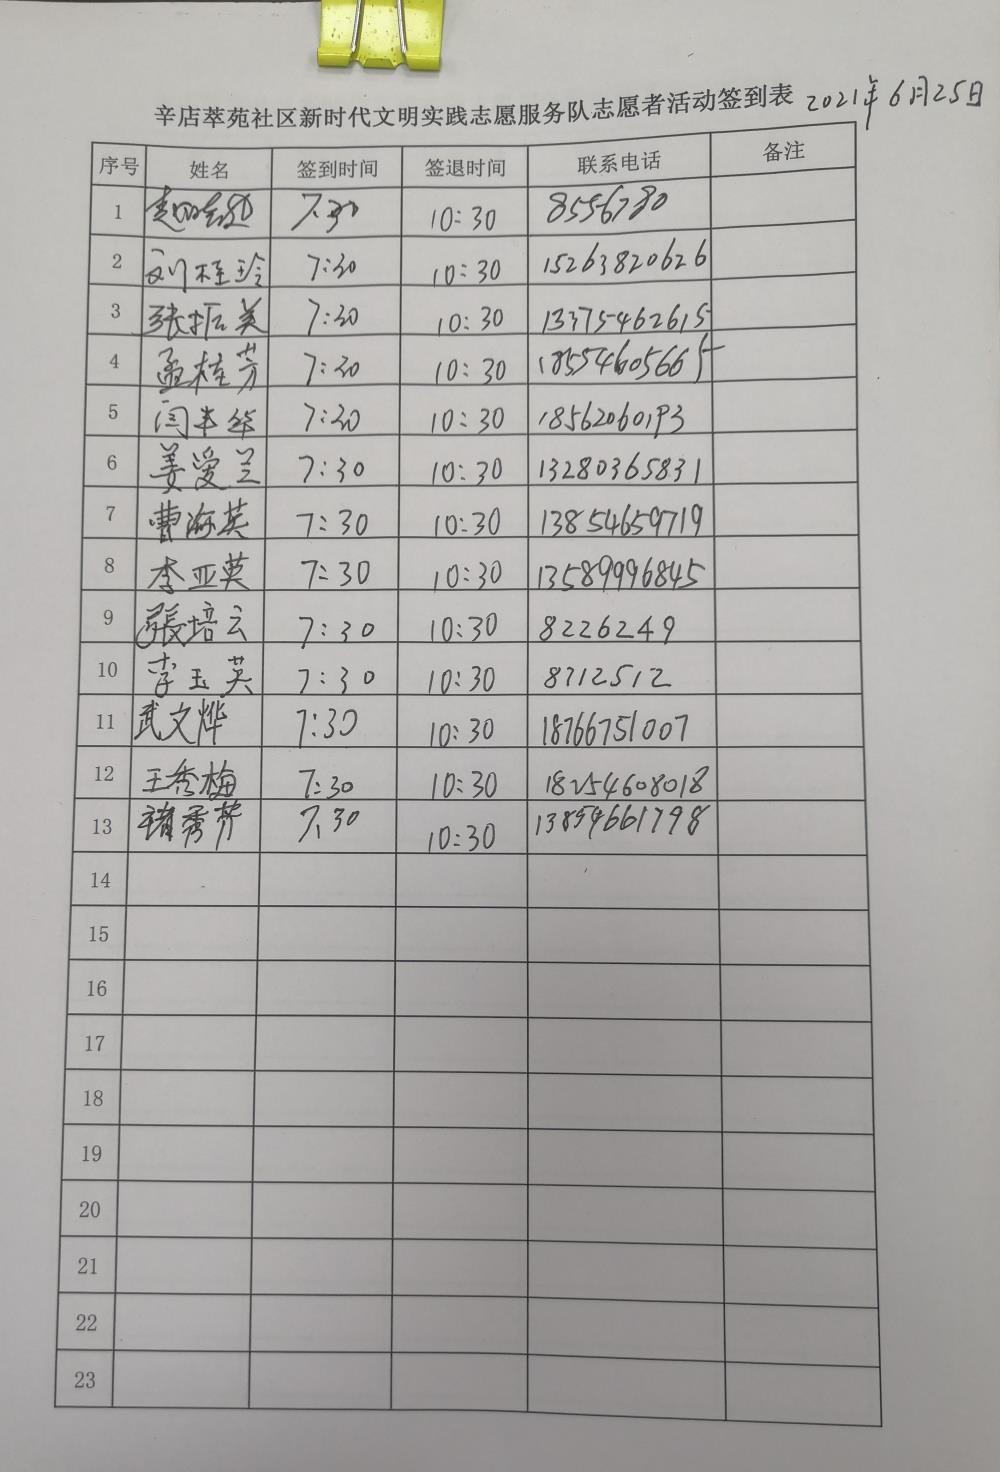 辛店萃苑社区新时代文明实践志愿服务队志愿者活动签到表 2021年6月25日
序号 姓名 签到时间 签退时间 联系电话 备注
1 7:30 10:30 8556780
2 刘桂玲 7:30 10:30 15263820626
3 张振美 7:30 10:30 13375462615
4 孟桂芳 7:30 10:30 18554605665
5 闫丰华 7:30 10:30 18562060193
6 姜爱兰 7:30 10:30 13280365831
7 曹海英 7:30 10:30 13854659719
8 李亚英 7:30 10:30 13589996845
9 張培云 7:30 10:30 8226249
10 李玉英 7:30 10:30 8712512
11 武文烨 7:30 10:30 18766751007
12 王秀梅 7:30 10:30 18254608018
13 秀芹 7:30 10:30 13854661798
14
15
16
17
18
19
20
21
22
23